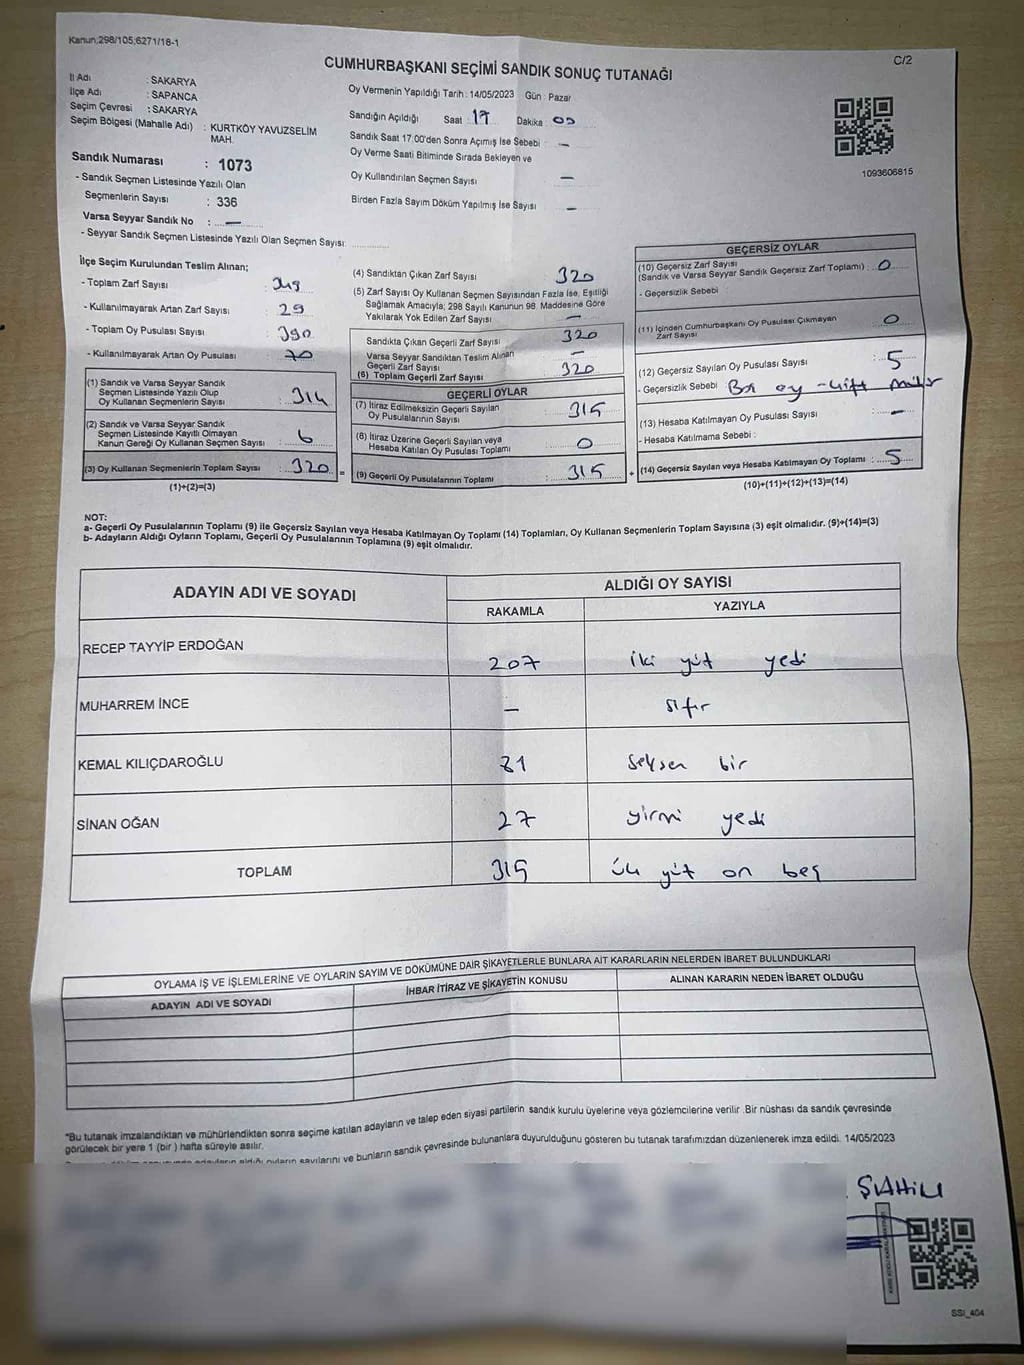 Kanun;298/105;6271/18-1
C/2
CUMHURBAŞKANI SEÇİMİ SANDIK SONUÇ TUTANAĞI
İl Adı : SAKARYA
İlçe Adı : SAPANCA
Seçim Çevresi : SAKARYA
Seçim Bölgesi (Mahalle Adı) : KURTKÖY YAVUZSELİM
MAH.
Sandık Numarası : 1073
- Sandık Seçmen Listesinde Yazılı Olan
Seçmenlerin Sayısı : 336
Varsa Seyyar Sandık No : —
- Seyyar Sandık Seçmen Listesinde Yazılı Olan Seçmen Sayısı:
Oy Vermenin Yapıldığı Tarih : 14/05/2023 Gün : Pazar
Sandığın Açıldığı Saat 17 Dakika 05
Sandık Saat 17:00'den Sonra Açımış İse Sebebi : —
Oy Verme Saati Bitiminde Sırada Bekleyen ve
Oy Kullandırılan Seçmen Sayısı —
Birden Fazla Sayım Döküm Yapılmış İse Sayısı —
1093606815
İlçe Seçim Kurulundan Teslim Alınan;
- Toplam Zarf Sayısı : 349
- Kullanılmayarak Artan Zarf Sayısı : 29
- Toplam Oy Pusulası Sayısı : 390
- Kullanılmayarak Artan Oy Pusulası : 70
(1) Sandık ve Varsa Seyyar Sandık
Seçmen Listesinde Yazılı Olup
Oy Kullanan Seçmenlerin Sayısı : 314
(2) Sandık ve Varsa Seyyar Sandık
Seçmen Listesinde Kayıtlı Olmayan
Kanun Gereği Oy Kullanan Seçmen Sayısı : 6
(3) Oy Kullanan Seçmenlerin Toplam Sayısı : 320 =
(1)+(2)=(3)
(4) Sandıktan Çıkan Zarf Sayısı : 320
(5) Zarf Sayısı Oy Kullanan Seçmen Sayısından Fazla İse, Eşitliği
Sağlamak Amacıyla; 298 Sayılı Kanunun 98. Maddesine Göre
Yakılarak Yok Edilen Zarf Sayısı : —
Sandıkta Çıkan Geçerli Zarf Sayısı : 320
Varsa Seyyar Sandıktan Teslim Alınan
Geçerli Zarf Sayısı : —
(6) Toplam Geçerli Zarf Sayısı : 320
GEÇERLİ OYLAR
(7) İtiraz Edilmeksizin Geçerli Sayılan
Oy Pusulalarının Sayısı : 315
(8) İtiraz Üzerine Geçerli Sayılan veya
Hesaba Katılan Oy Pusulası Toplamı : 0
(9) Geçerli Oy Pusulalarının Toplamı : 315 +
GEÇERSİZ OYLAR
(10) Geçersiz Zarf Sayısı
(Sandık ve Varsa Seyyar Sandık Geçersiz Zarf Toplamı) : 0
- Geçersizlik Sebebi :
(11) İçinden Cumhurbaşkanı Oy Pusulası Çıkmayan
Zarf Sayısı : 0
(12) Geçersiz Sayılan Oy Pusulası Sayısı : 5
- Geçersizlik Sebebi : Boş oy - çift mühür
(13) Hesaba Katılmayan Oy Pusulası Sayısı : —
- Hesaba Katılmama Sebebi :
(14) Geçersiz Sayılan veya Hesaba Katılmayan Oy Toplamı : 5
(10)+(11)+(12)+(13)=(14)
NOT:
a- Geçerli Oy Pusulalarının Toplamı (9) ile Geçersiz Sayılan veya Hesaba Katılmayan Oy Toplamı (14) Toplamları, Oy Kullanan Seçmenlerin Toplam Sayısına (3) eşit olmalıdır. (9)+(14)=(3)
b- Adayların Aldığı Oyların Toplamı, Geçerli Oy Pusulalarının Toplamına (9) eşit olmalıdır.
ADAYIN ADI VE SOYADI ALDIĞI OY SAYISI
RAKAMLA YAZIYLA
RECEP TAYYİP ERDOĞAN 207 iki yüz yedi
MUHARREM İNCE — sıfır
KEMAL KILIÇDAROĞLU 81 seksen bir
SİNAN OĞAN 27 yirmi yedi
TOPLAM 315 üç yüz on beş
OYLAMA İŞ VE İŞLEMLERİNE VE OYLARIN SAYIM VE DÖKÜMÜNE DAİR ŞİKAYETLERLE BUNLARA AİT KARARLARIN NELERDEN İBARET BULUNDUKLARI
ADAYIN ADI VE SOYADI İHBAR İTİRAZ VE ŞİKAYETİN KONUSU ALINAN KARARIN NEDEN İBARET OLDUĞU
"Bu tutanak imzalandıktan ve mühürlendikten sonra seçime katılan adayların ve talep eden siyasi partilerin sandık kurulu üyelerine veya gözlemcilerine verilir .Bir nüshası da sandık çevresinde
görülecek bir yere 1 (bir ) hafta süreyle asılır.
ve bunların sandık çevresinde bulunanlara duyurulduğunu gösteren bu tutanak tarafımızdan düzenlenerek imza edildi. 14/05/2023
SSI_404